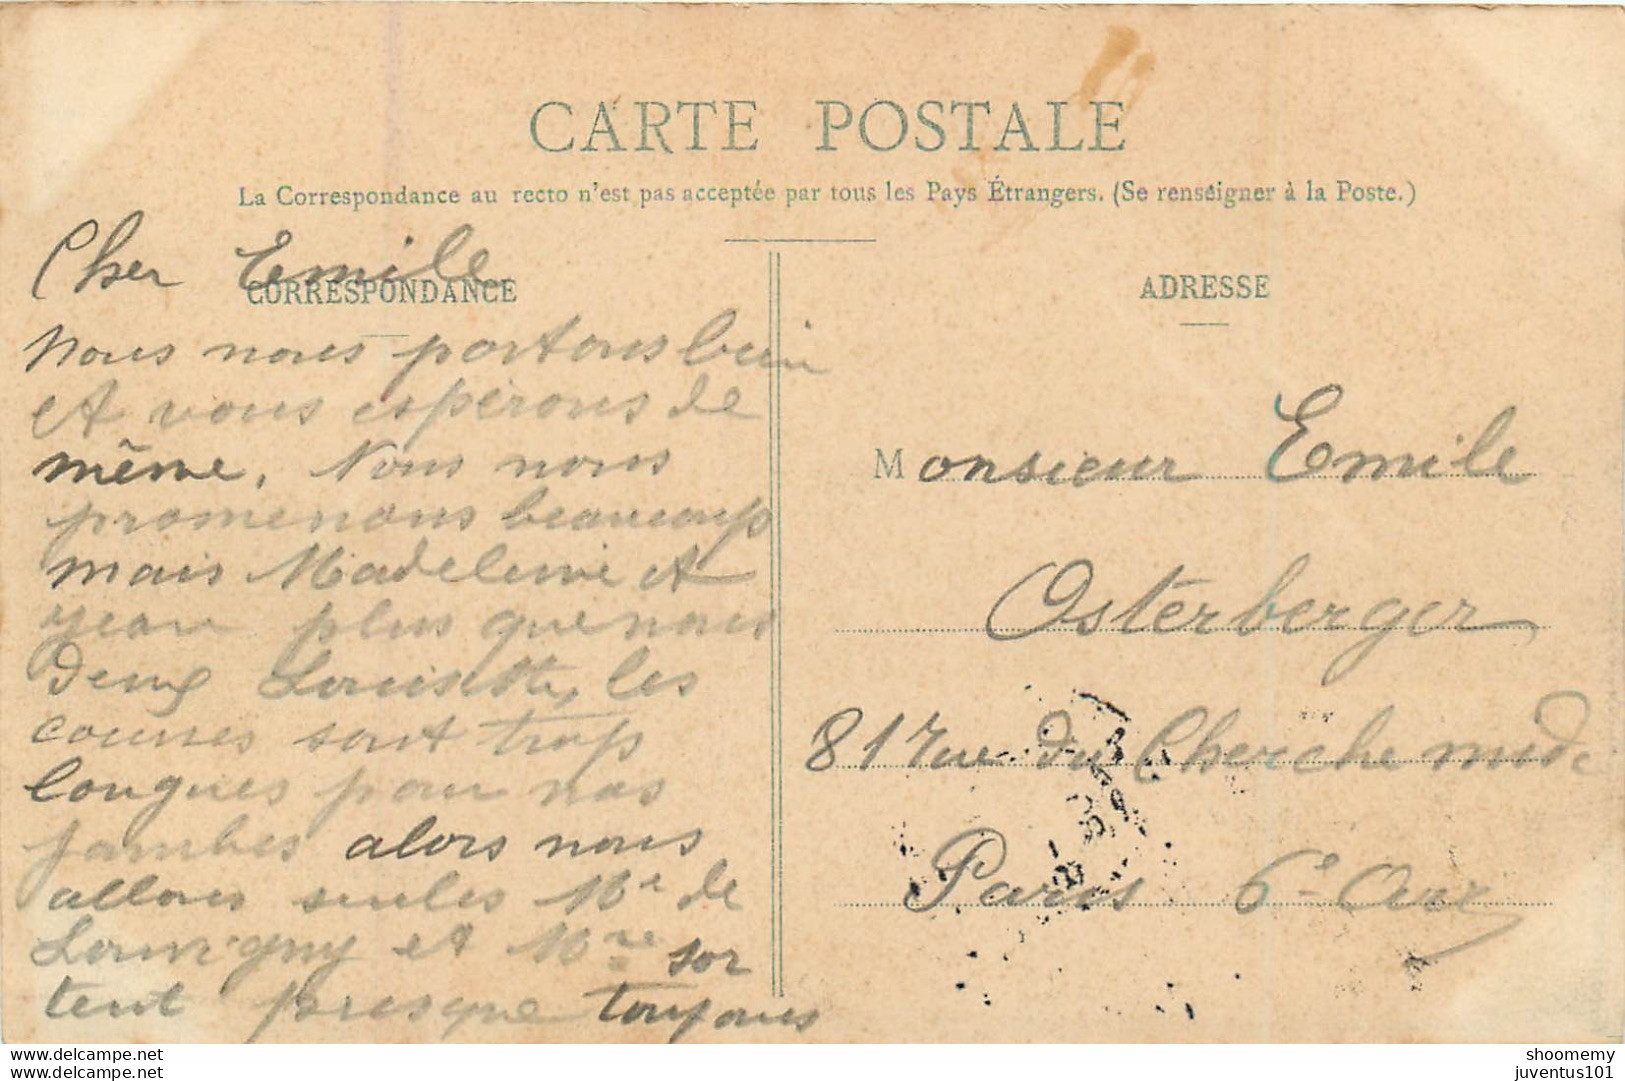 CARTE POSTALE
La Correspondance au recto n'est pas acceptée par tous les Pays Étrangers. (Se renseigner à la Poste.)
Cher Emile
CORRESPONDANCE
Nous nous portons bien
et vous espérons de
même. Nous nous
promenons beaucoup
mais Madeleine et
yean plus que nous
deux Louisette, les
courses sont trop
longues pour nos
jambes alors nous
allons seules Me de
Louvigny et Mre sor
tent presque toujours
ADRESSE
Monsieur Emile
Osterberger
81 rue du Cherche midi
Paris 6e Arr
Recto verso
Recto verso
shoomemy
juventus101